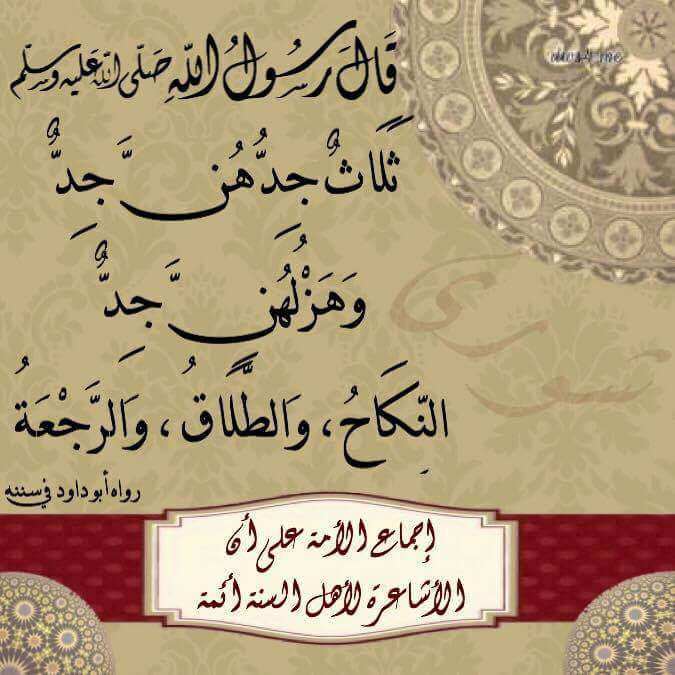 قَالَ رَسُولُ اللّٰهِ صَلّى اللّٰه عَلَيه وَسَلّم
ثَلَاثٌ جِدُّهُنَّ جِدٌّ
وَهَزْلُهُنَّ جِدٌّ
النِّكَاحُ، وَالطَّلَاقُ، وَالرَّجْعَةُ
رواه أبو داود في سننه
إجماع الأمة على أن
الأشاعرة لأهل السنة أئمة
شورى